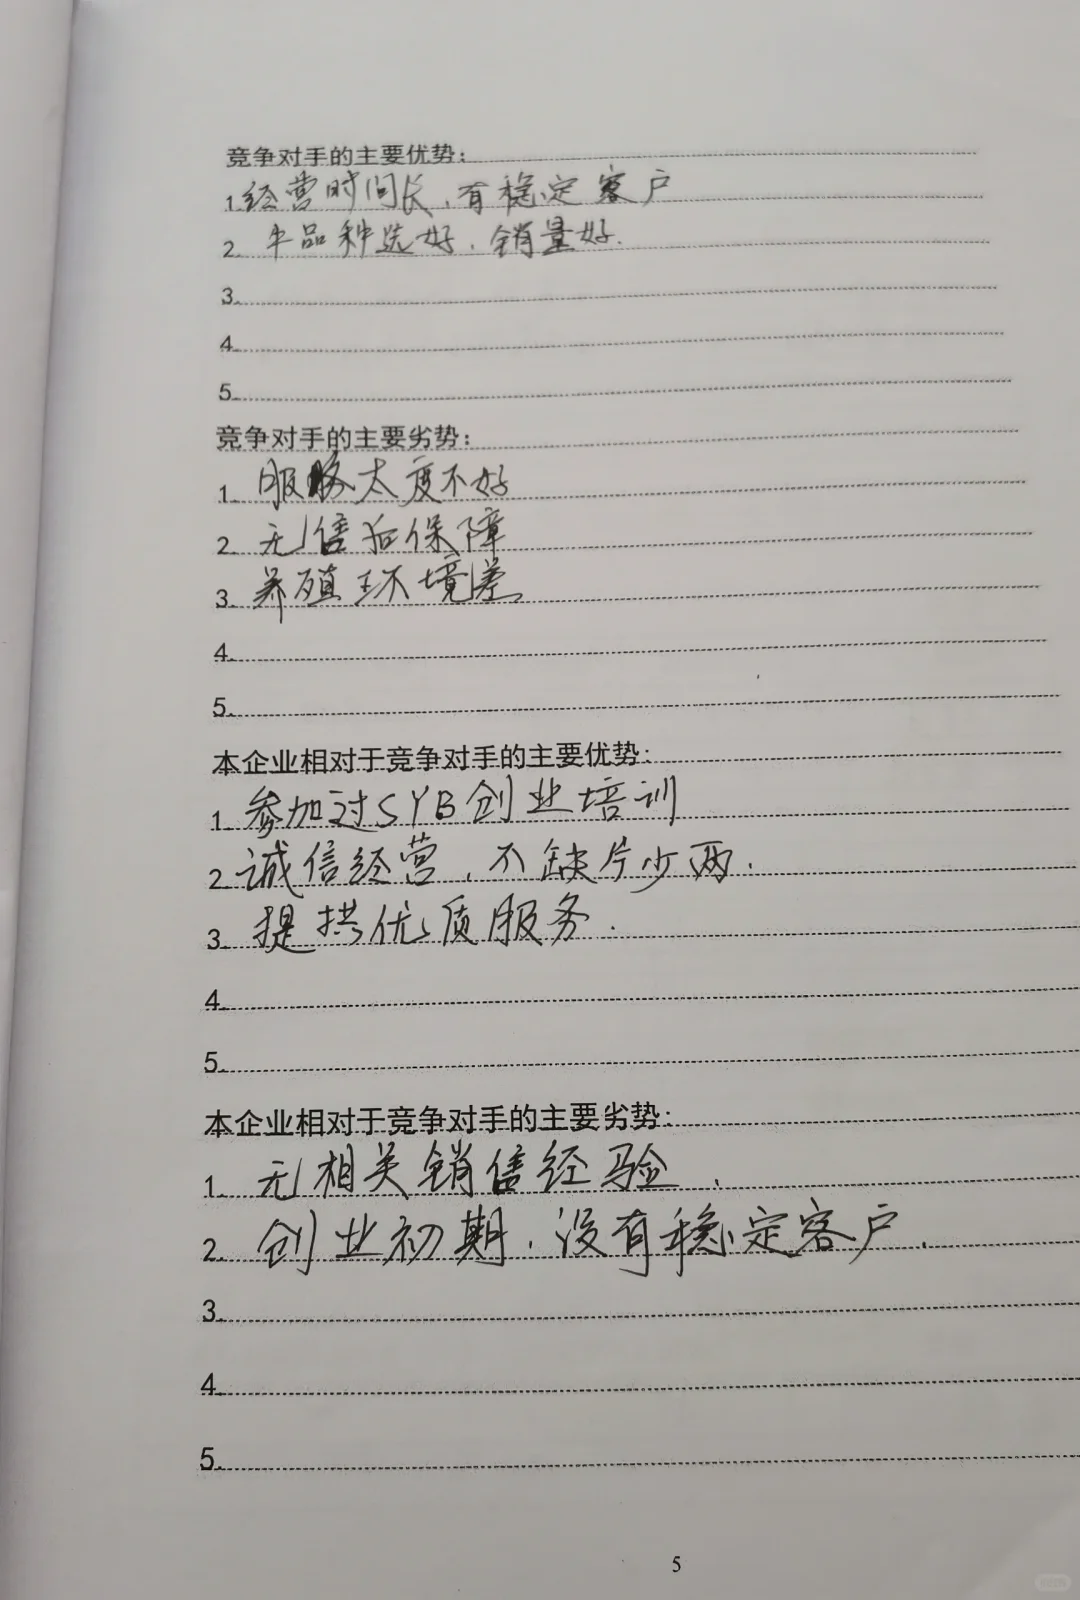 竞争对手的主要优势：
1.经营时间长，有稳定客户
2. 牛品种选好，销量好.
3.
4.
5.
竞争对手的主要劣势：
1. 服务太度不好
2. 无售后保障
3. 养殖环境差
4.
5.
本企业相对于竞争对手的主要优势：
1. 参加过SYB创业培训
2.诚信经营，不缺斤少两.
3. 提拱优质服务.
4.
5.
本企业相对于竞争对手的主要劣势：
1. 无相关销售经验.
2. 创业初期，没有稳定客户.
3.
4.
5.
5